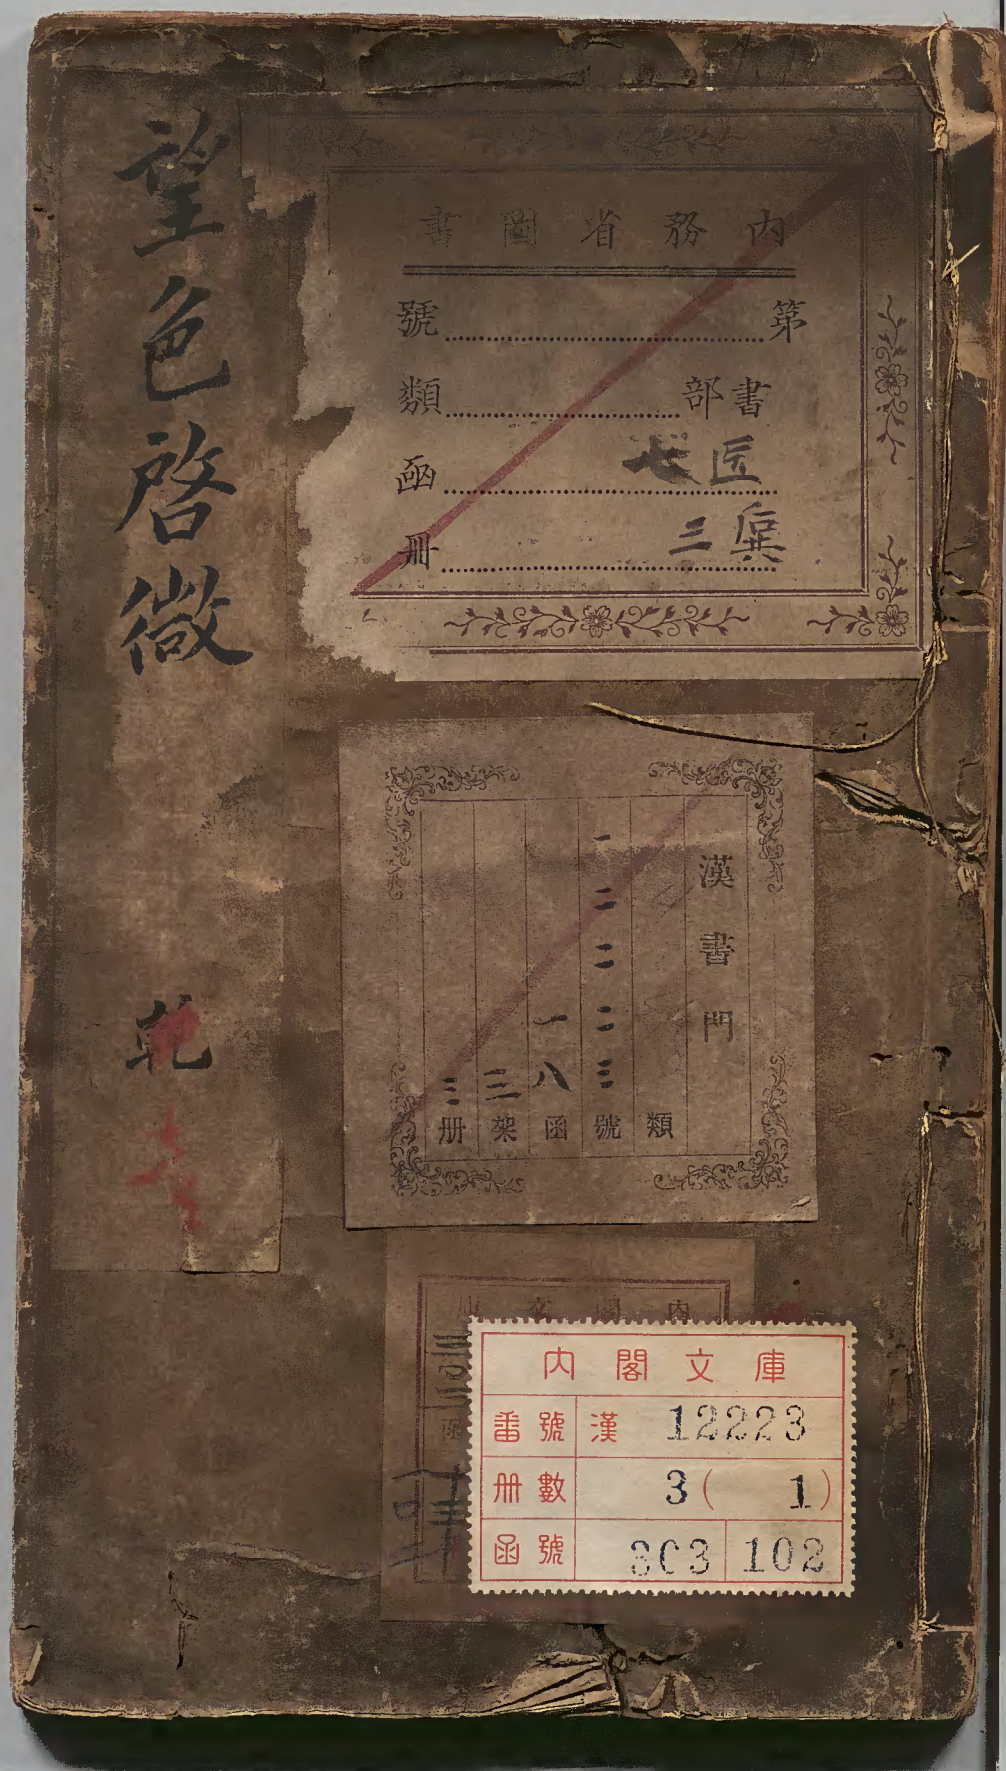 望色啓微
乾
内務省圖書
第號
書部類
医七函
三册
漢書門
類
一二二二三號
一八函
三架
三册
内閣文庫
内閣文庫
番號 漢 12223
冊數 3 ( 1 )
函號 303 102